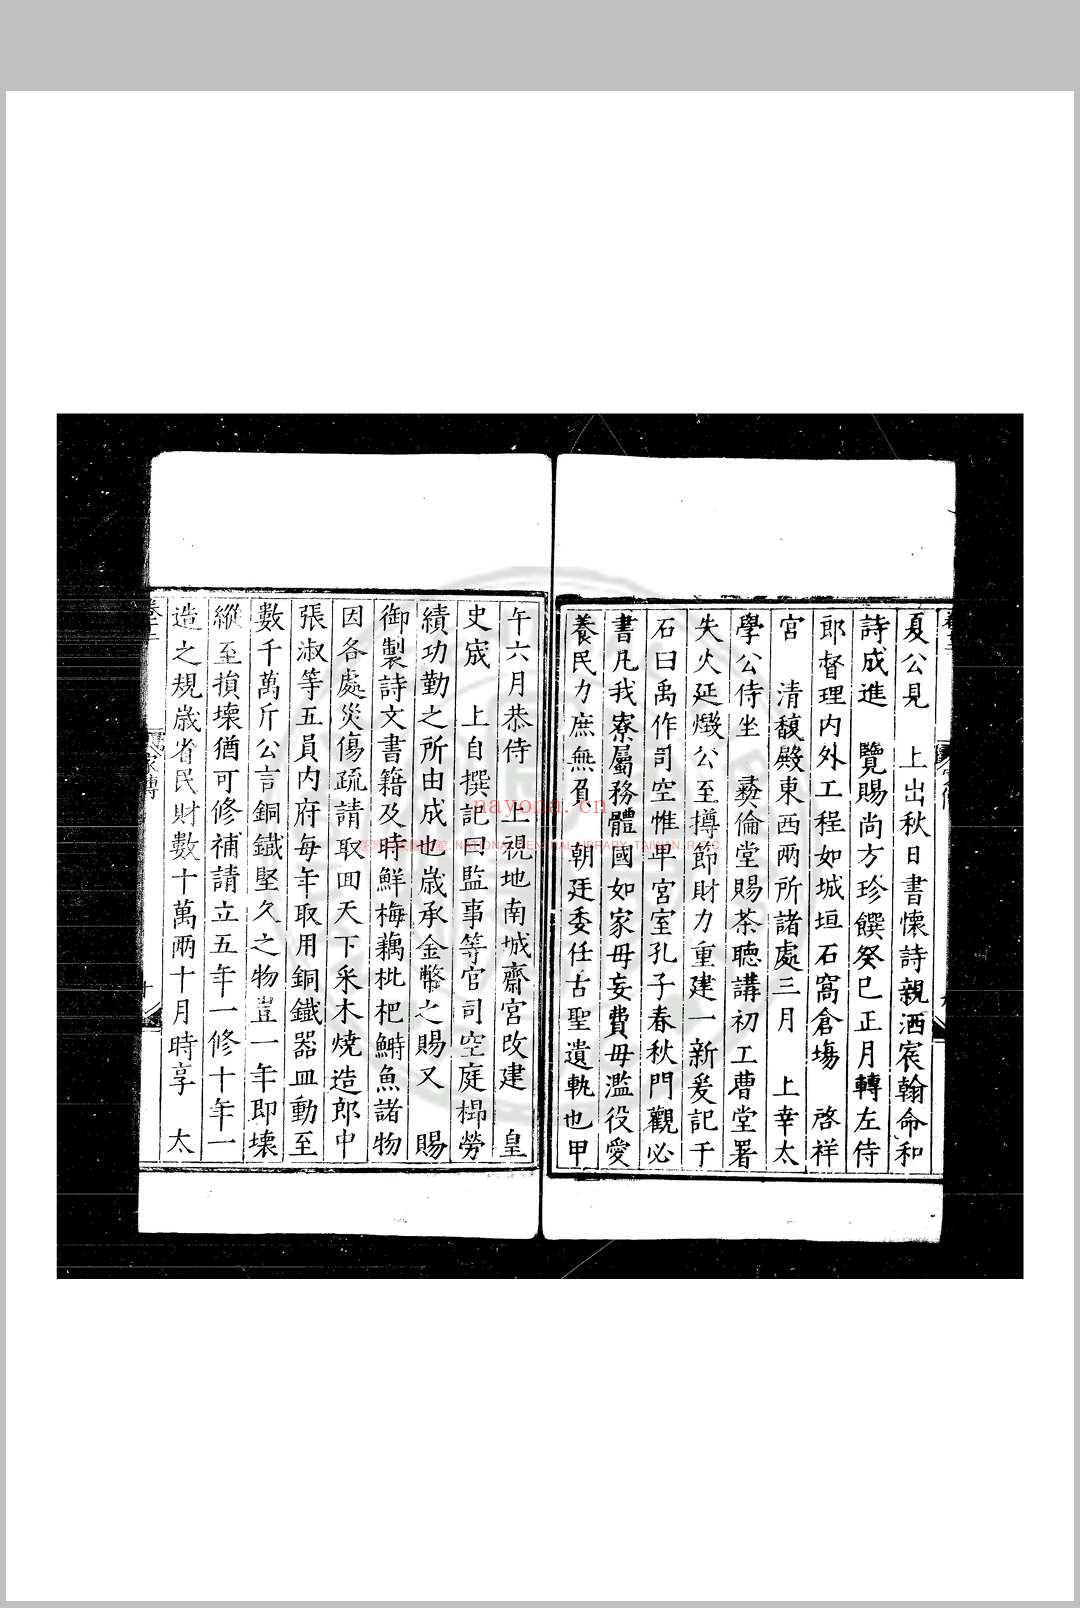 夏公見　上出秋日書懷詩親洒宸翰命和
詩成進　覽賜尚方珍饌癸巳正月轉左侍
郎督理内外工程如城垣石窩倉塲　啓祥
宮　清馥殿東西兩所諸處三月　上幸太
學公侍坐　彞倫堂賜茶聽講初工曹堂署
失火延燬公至撙節財力重建一新爰記于
石曰禹作司空惟卑宮室孔子春秋門觀必
書凡我寮屬務體國如家毋妄費毋濫役愛
養民力庶無負　朝廷委任古聖遺軌也甲
午六月恭侍　上視地南城齋宮改建　皇
史宬　上自撰記曰監事等官司空庭㭿勞
績功勤之所由成也歲承金幣之賜又　賜
御製詩文書籍及時鮮梅藕枇杷鰣魚諸物
因各處災傷疏請取回天下采木燒造郎中
張淑等五員内府每年取用銅鐵器皿動至
數千萬斤公言銅鐵堅久之物豈一年即壊
縱至損壊猶可修補請立五年一修十年一
造之規歲省民財數十萬兩十月時享　太
nayona.cn
NATIONAL CENTRAL LIBRARY, TAIWAN, R.O.C.